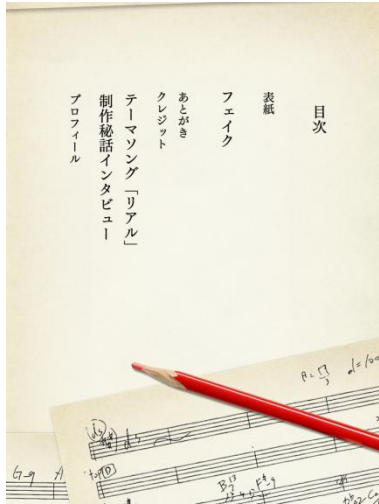 目次
表紙
フェイク
あとがき
クレジット
テーマソング「リアル」
制作秘話インタビュー
プロフィール